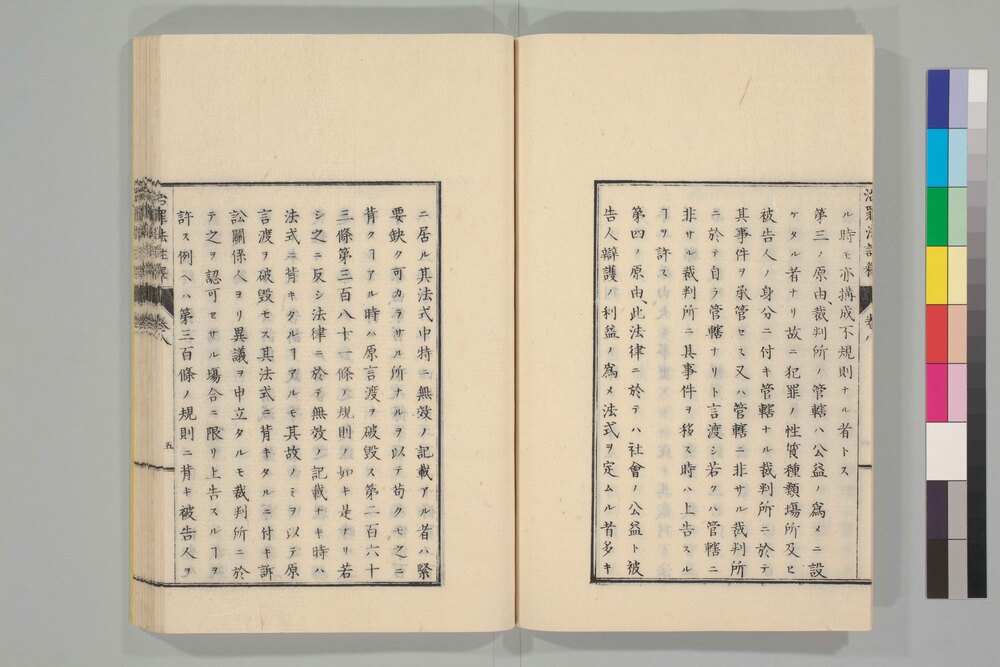 ル時モ亦搆成不規則ナル者トス
第三ノ原由裁判所ノ管轄ハ公益ノ爲メニ設
ケタル者ナリ故ニ犯罪ノ性質種類塲所及ヒ
被告人ノ身分ニ付キ管轄ナル裁判所ニ於テ
其事件ヲ承管セス又ハ管轄ニ非サル裁判所
ニ於テ自ラ管轄ナリト言渡シ若クハ管轄ニ
非サル裁判所ニ其事件ヲ移ス時ハ上告スル
ヿヲ許ス
第四ノ原由此法律ニ於テハ社會ノ公益ト被
告人辯護ノ利益ノ爲メ法式ヲ定ムル者多キ
ニ居ル其法式中特ニ無效ノ記載アル者ハ緊
要缺ク可カラサル所ナルヲ以テ苟クモ之ニ
背クヿアル時ハ原言渡ヲ破毀ス第二百六十
三條第三百八十一條ノ規則ノ如キ是ナリ若
シ之ニ反シ法律ニ於テ無效ノ記載ナキ時ハ
法式ニ背キタルヿアルモ其故ノミヲ以テ原
言渡ヲ破毀セス其法式ニ背キタルニ付キ訴
訟關係人ヨリ異議ヲ申立タルモ裁判所ニ於
テ之ヲ認可セサル塲合ニ限リ上告スルヿヲ
許ス例ヘハ第三百條ノ規則ニ背キ被告人ヲ
五